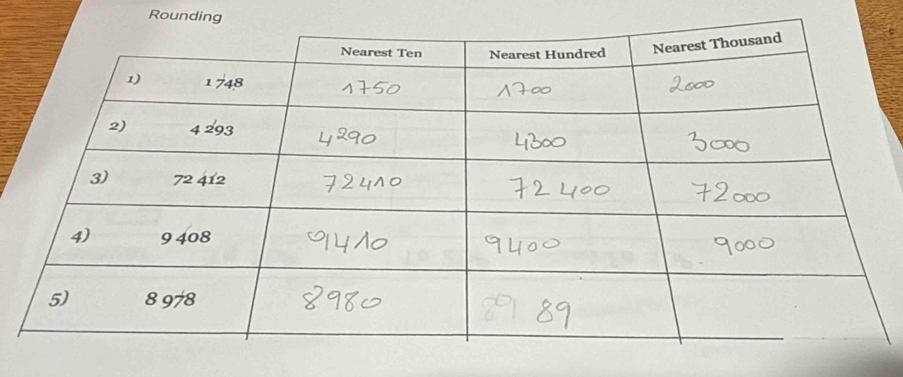 Rounding
Nearest Ten Nearest Hundred Nearest Thousand
1) 1 748 1750 1700 2000
2) 4 293 4290 4300 3000
3) 72 412 72410 72400 72000
4) 9 408 9410 9400 9000
5) 8 978 8980 89 89